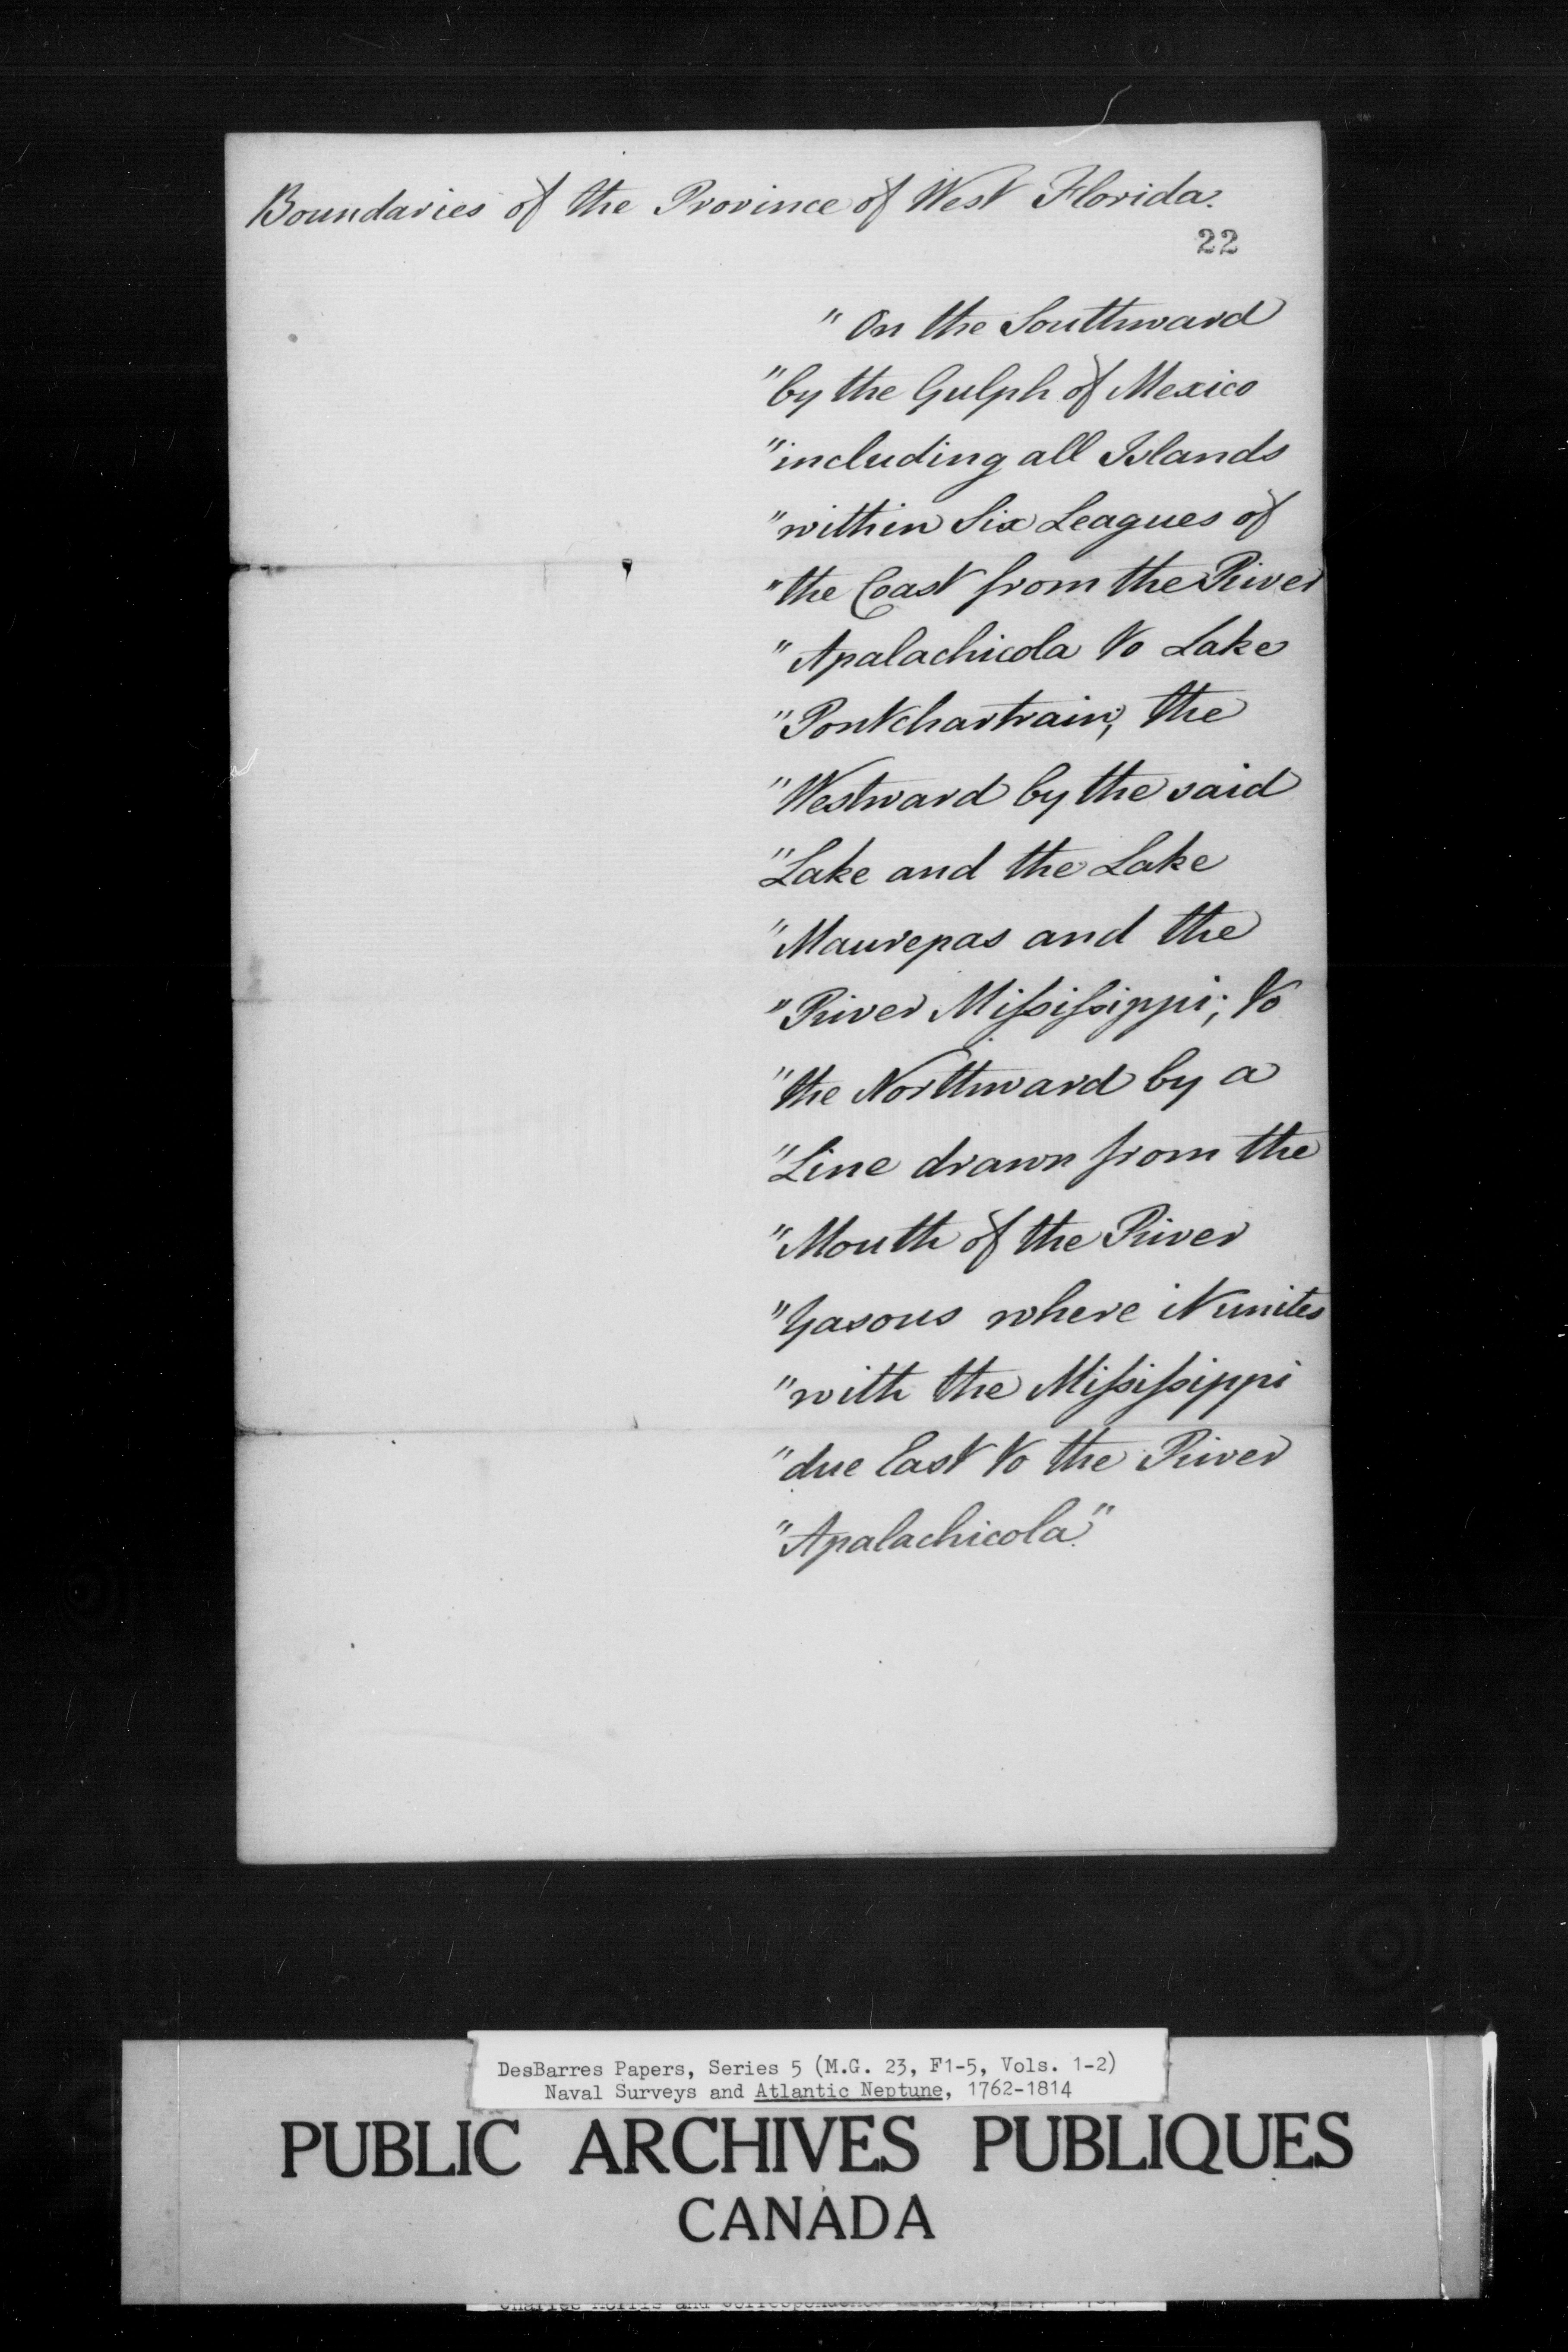 Boundaries of the Province of West Florida.
22
" On the Southward
"by the Gulph of Mexico
"including all Islands
"within Six Leagues of
"the Coast from the River
"Apalachicola to Lake
"Pontchartrain, the
"Westward by the said
"Lake and the Lake
"Maurepas and the
"River Miſsiſsippi; to
"the Northward by a
"Line drawn from the
"Mouth of the River
"Yasous where it unites
"with the Miſsiſsippi
"due East to the River
"Apalachicola."
DesBarres Papers, Series 5 (M.G. 23, F1-5, Vols. 1-2)
Naval Surveys and Atlantic Neptune, 1762-1814
PUBLIC ARCHIVES PUBLIQUES
CANADA